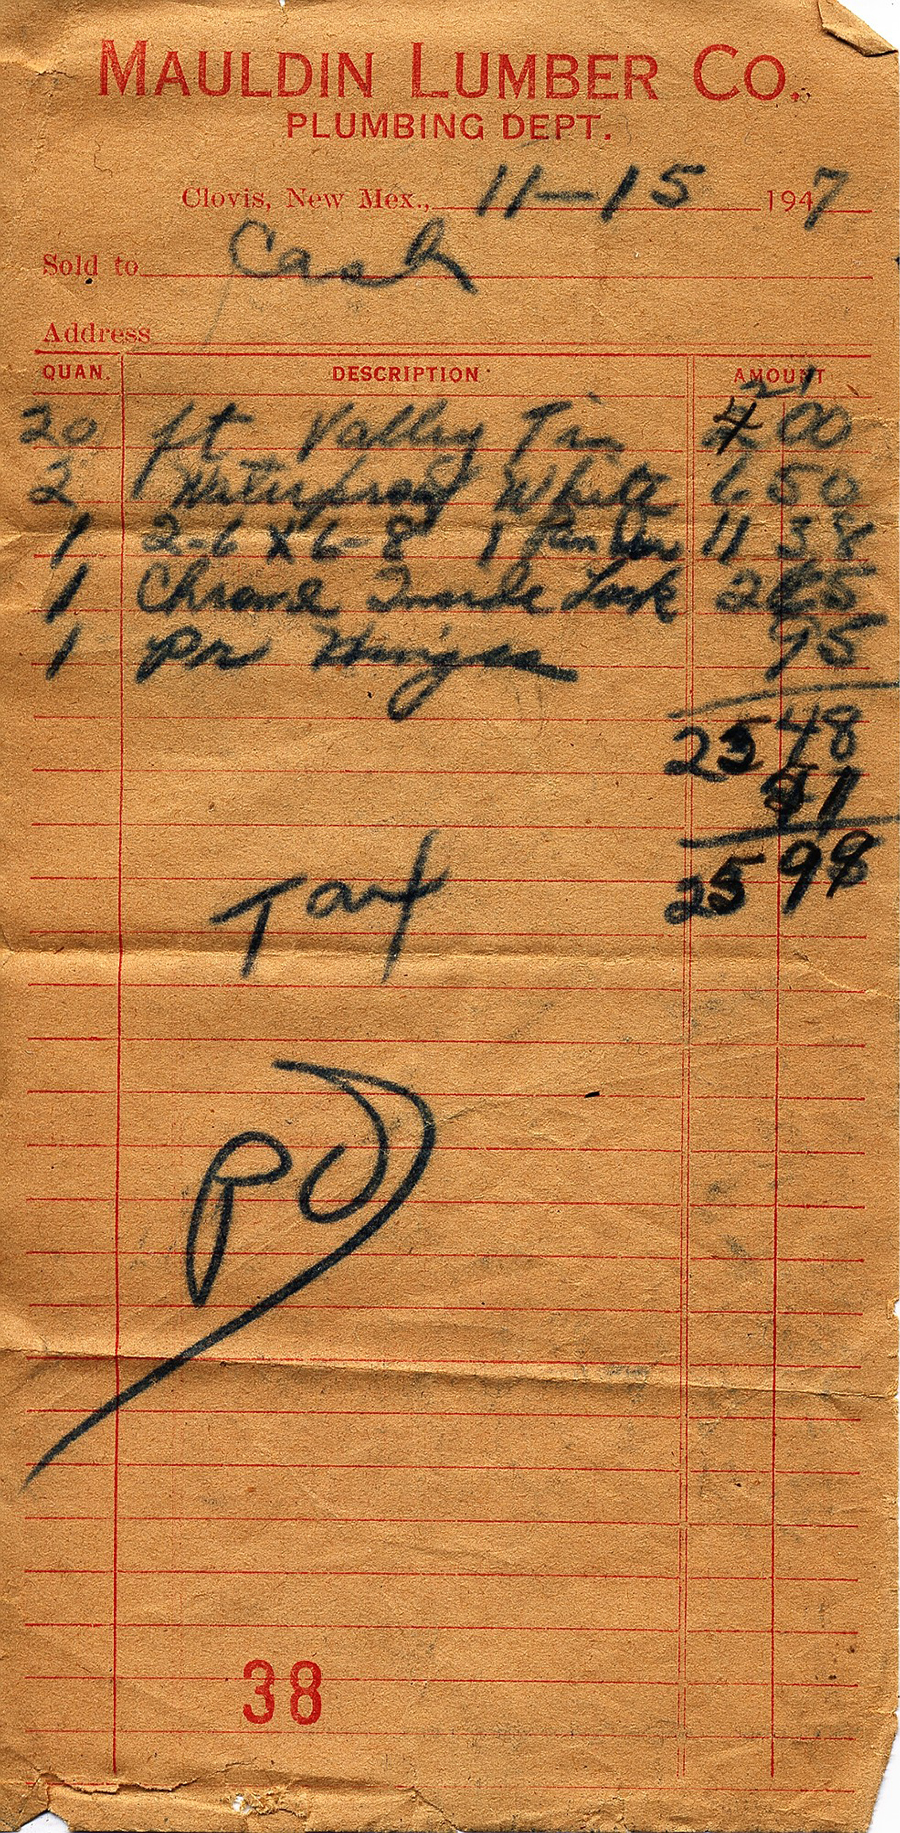 MAULDIN LUMBER CO.
PLUMBING DEPT.
Clovis, New Mex., 11-15 1947
Sold to Cash
Address
QUAN. DESCRIPTION AMOUNT
21
20 ft Valley Tin 4 00
2 Waterproof White 6 50
1 2-6 X 6-8 1 Panel 11 38
1 Chrome Inside Lock 2 85
1 Pr Hinges 75
25 48
Tax
25 98
Pd
38